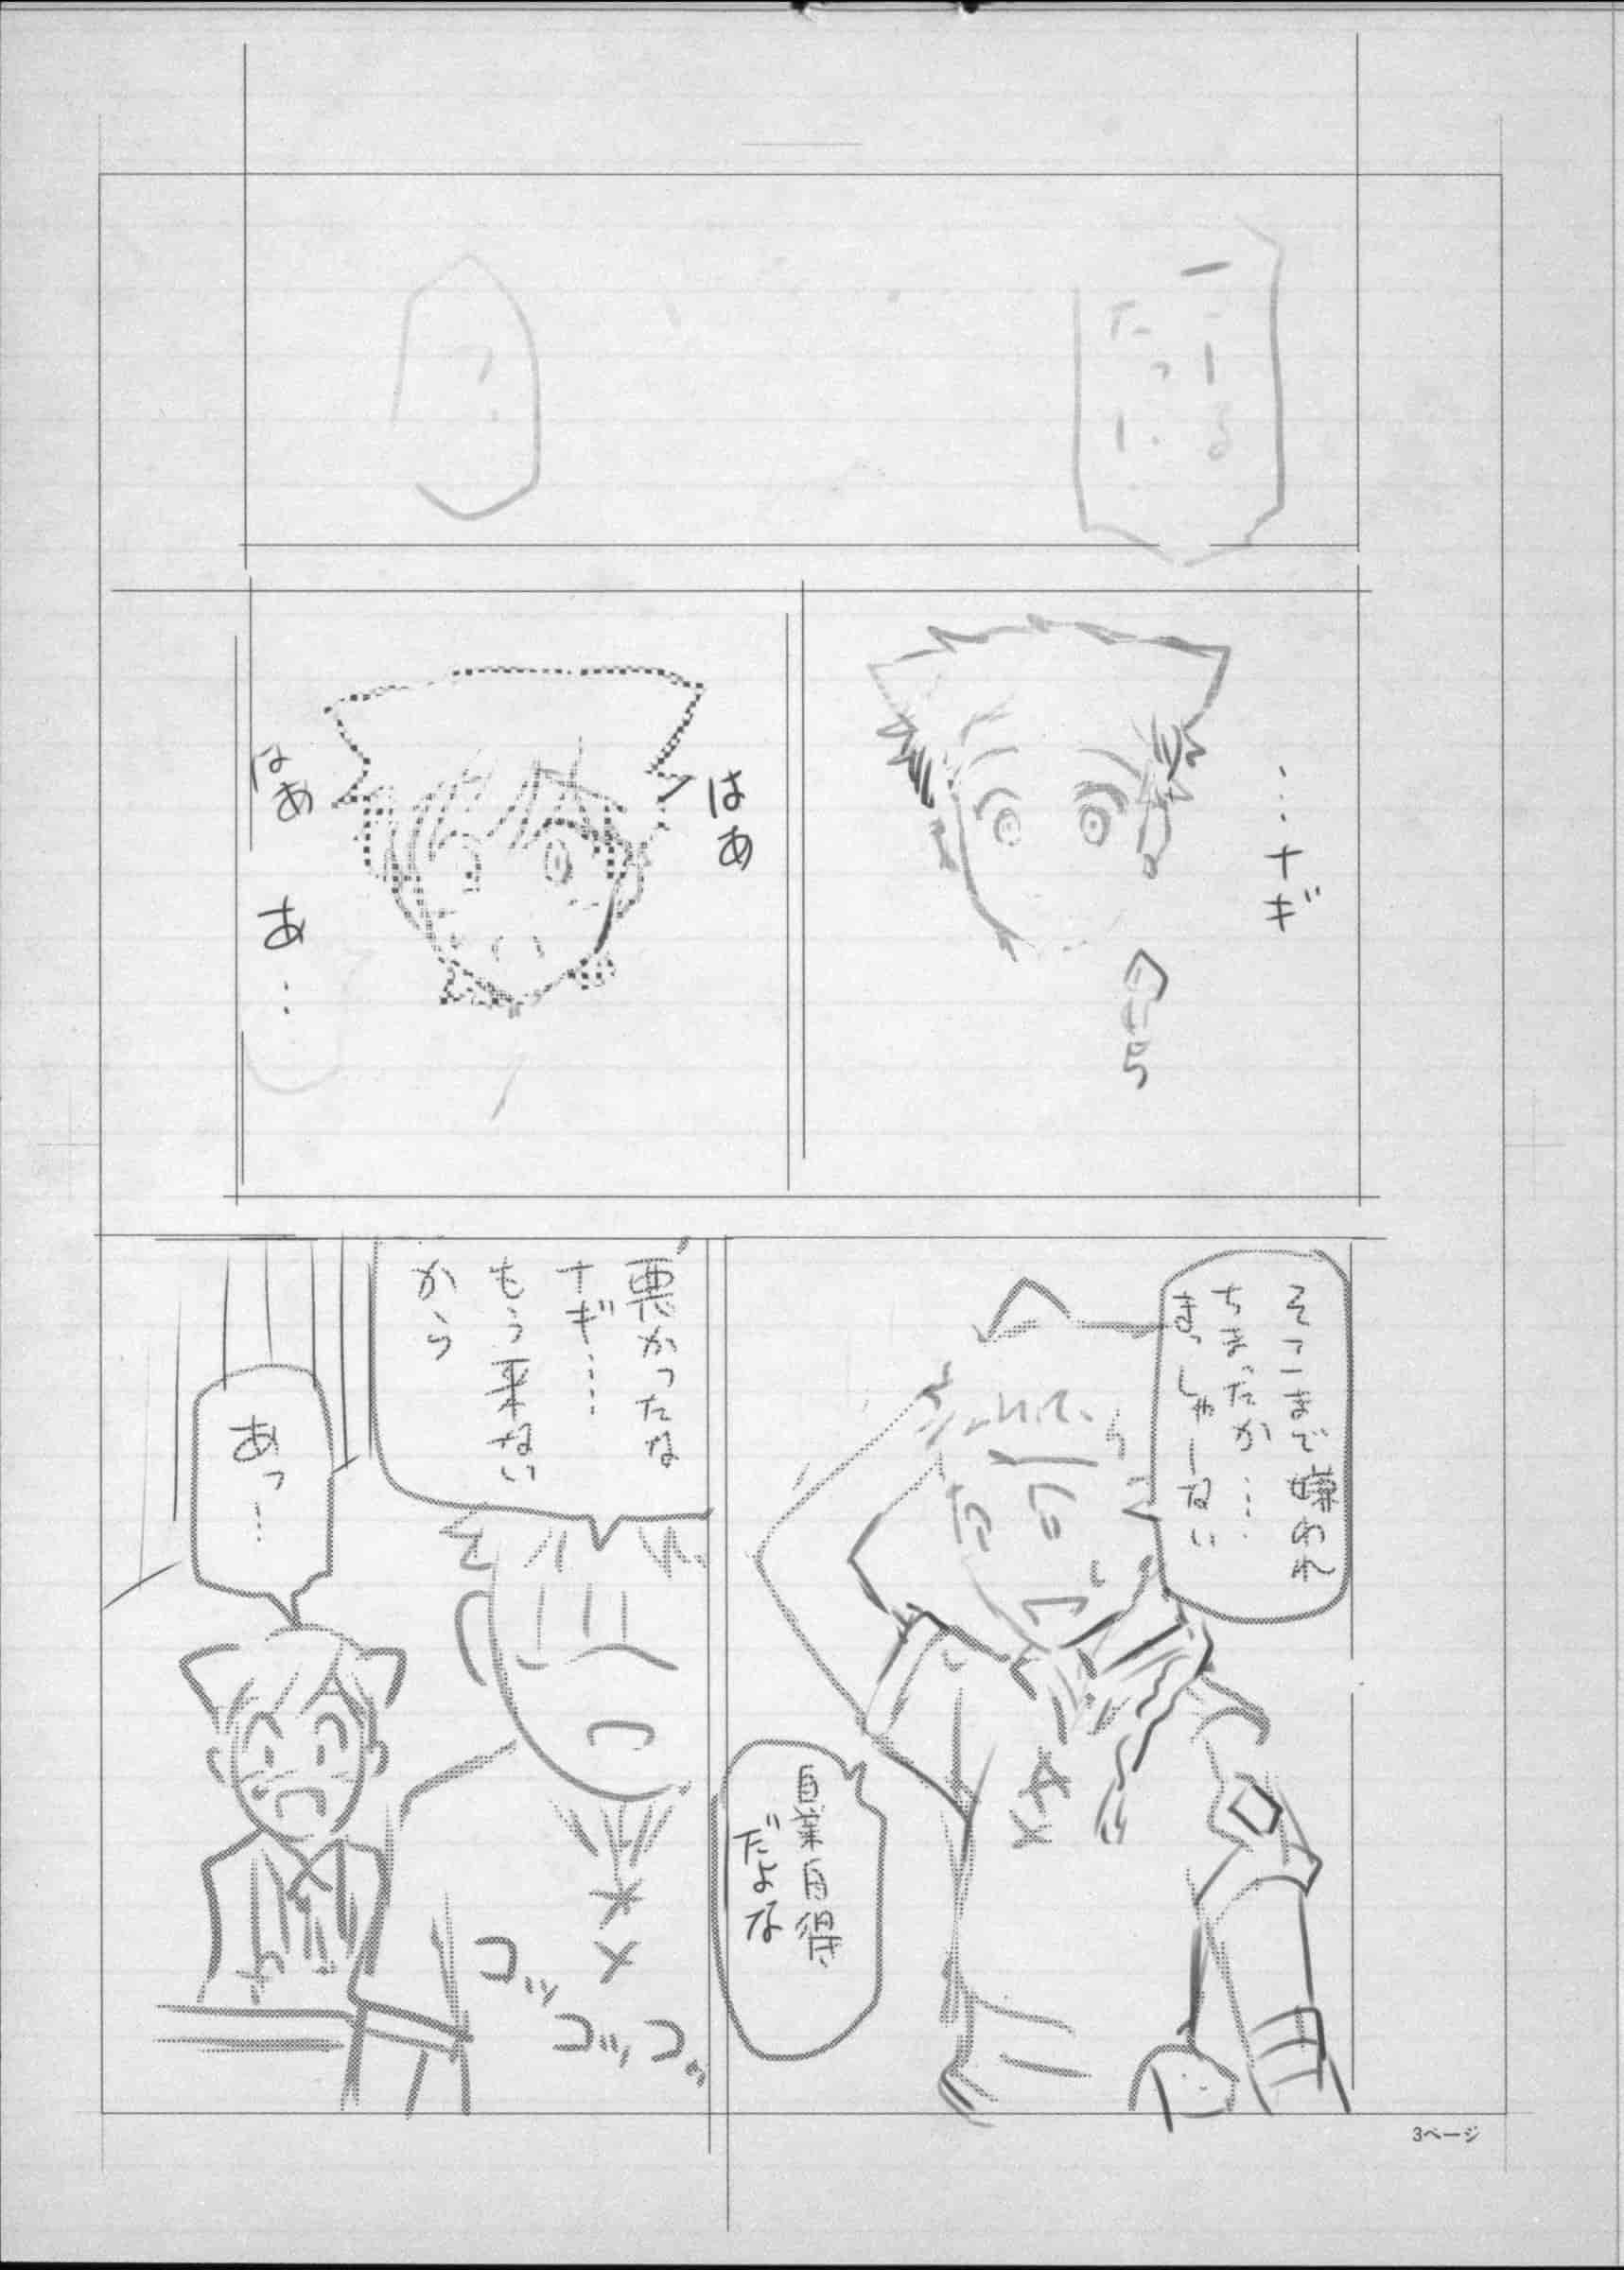 ？
…ナギ
はあ
はあ
あ…
そこまで嫌われ
ちまったか…
まっしゃーない
自業自得
だよな
悪かったな
ナギ…
もう来ない
から
あっ…
コッ
コッ
コッ
3ページ